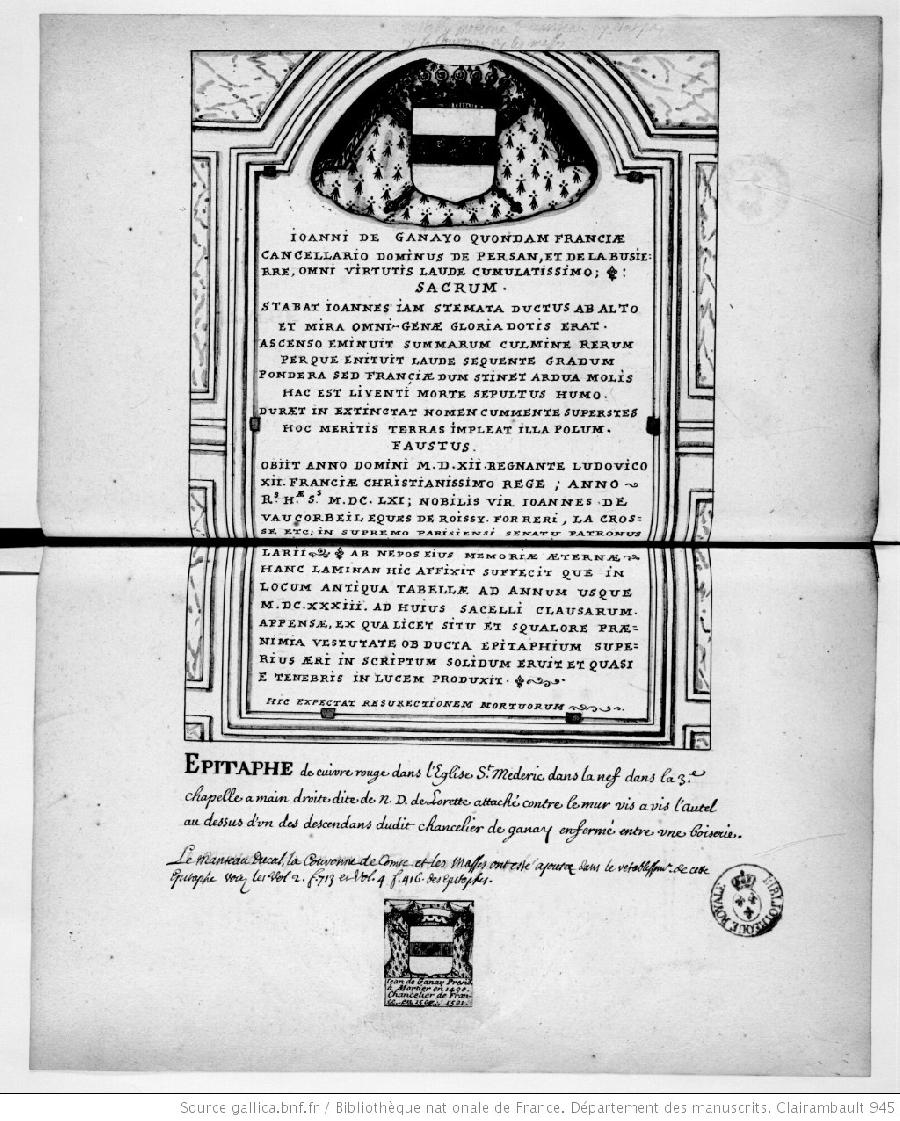 IOANNI DE GANAYO QUONDAM FRANCIÆ
CANCELLARIO DOMINUS DE PERSAN, ET DE LA BUSIE=
RRE, OMNI VIRTUTIS LAUDE CUMULATISSIMO;
SACRUM.
STABAT IOANNES IAM STEMATA DUCTUS AB ALTO
ET MIRA OMNI-GENÆ GLORIA DOTIS ERAT.
ASCENSO EMINUIT SUMMARUM CULMINE RERUM
PER QUE ENITUIT LAUDE SEQUENTE GRADUM
PONDERA SED FRANCIÆ DUM STINET ARDUA MOLIS
HAC EST LIVENTI MORTE SEPULTUS HUMO.
DURÆT IN EXTINCTAT NOMEN CUMMENTE SUPERSTES
HOC MERITIS TERRAS IMPLEAT ILLA POLUM.
FAUSTUS.
OBIIT ANNO DOMINI M.D.XII. REGNANTE LUDOVICO
XII. FRANCIÆ CHRISTIANISSIMO REGE; ANNO
R.S H.Æ S.S M.DC.LXI; NOBILIS VIR IOANNES DE
VAUCORBEIL EQUES DE ROISSY. FORRERI, LA CROS=
SE ETC. IN SUPREMO PARISIENSI SENATU PATRONUS
LARII AB NEPOS EIUS MEMORIÆ ÆTERNÆ
HANC LAMINAN HIC AFFIXIT SUFFECIT QUE IN
LOCUM ANTIQUA TABELLÆ AD ANNUM USQUE
M.DC.XXXIII. AD HUIUS SACELLI CLAUSARUM.
APPENSÆ, EX QUA LICET SITU ET SQUALORE PRÆ=
NIMIA VESTUTATE OB DUCTA EPITAPHIUM SUPE=
RIUS ÆRI IN SCRIPTUM SOLIDUM ERUIT ET QUASI
E TENEBRIS IN LUCEM PRODUXIT.
HIC EXPECTAT RESURECTIONEM MORTUORUM
EPITAPHE de cuivre rouge dans l'Eglise S.t Mederic dans la nef dans la 3.e
chapelle a main droite dite de N. D. de Lorette attaché contre le mur vis a vis l'autel
au dessus d'vn des descendans dudit chancelier de ganay enfermé entre vne boiserie.
Le Manteau Ducal, la Couronne de Comte et les Masses ont esté ajoutez dans le retablissm.t de cette
Epitaphe voiez les Vol 2. f. 713 et Vol. 4. f. 416. des Epitaphes.
BIBLIOTHEQUE ROYALE
Jean de Ganay Presid.
à Mortier en 1490.
Chancelier de Fran=
ce en
Source gallica.bnf.fr / Bibliothèque nationale de France. Département des manuscrits. Clairambault 945